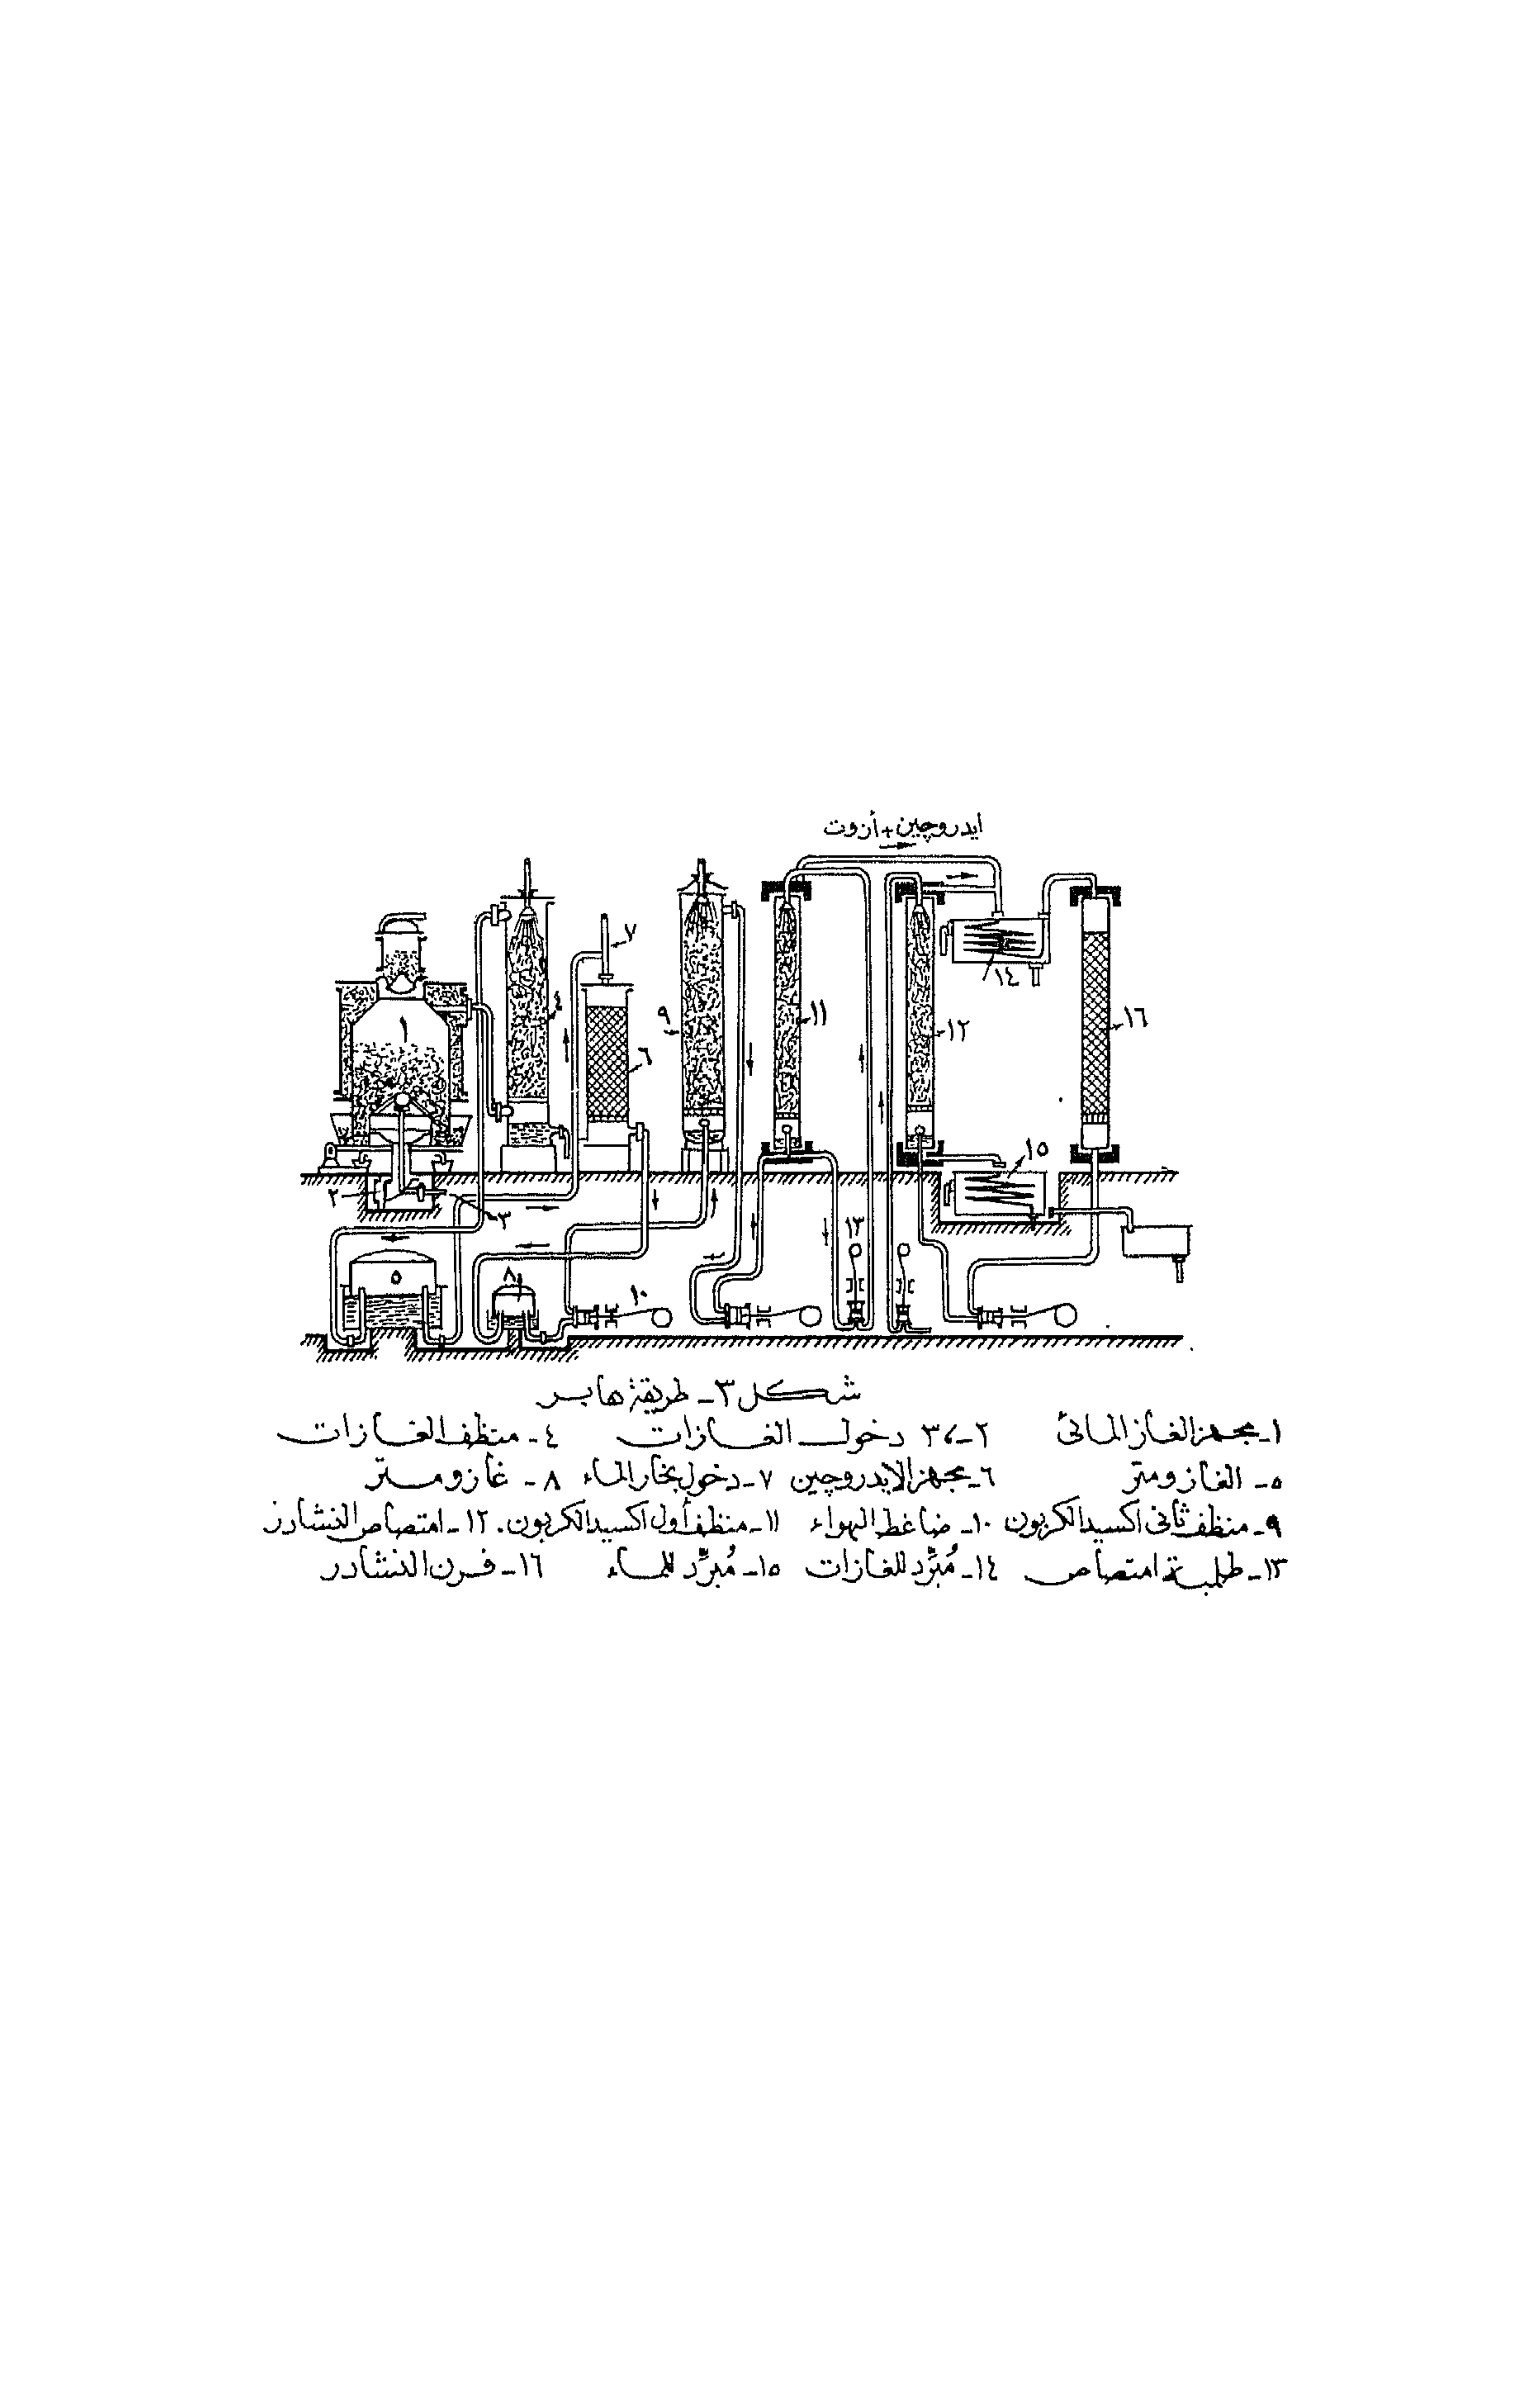 ايدروچين + أزوت
٧
٤
١
٦
٩
١١
١٢
١٤
١٦
١٥
٢
٣
٥
٨
١٠
١٣
شكل ٣ - طريقة هابر
١- مجهز الغاز المائى ٢-،٣ دخول الغازات ٤- منظف الغازات
٥- الغازومتر ٦- مجهز الايدروچين ٧- دخول بخار الماء ٨- غازومتر
٩- منظف ثانى اكسيد الكربون ١٠- ضاغط الهواء ١١- منظف أول اكسيد الكربون. ١٢- امتصاص النشادر
١٣- طلمبة امتصاص ١٤- مُبرِّد للغازات ١٥- مُبرِّد للماء ١٦- فرن النشادر